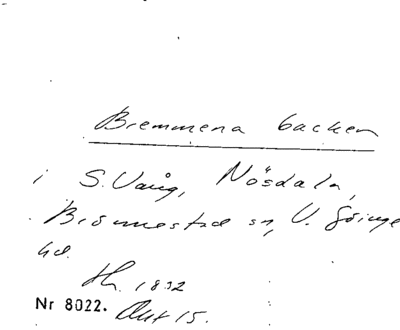 Bremmena backen
i S. Vång, Nösdala,
Brönnestad sn, V. Göinge
hd.
Hr. 1832
Nr 8022. Akt 15.